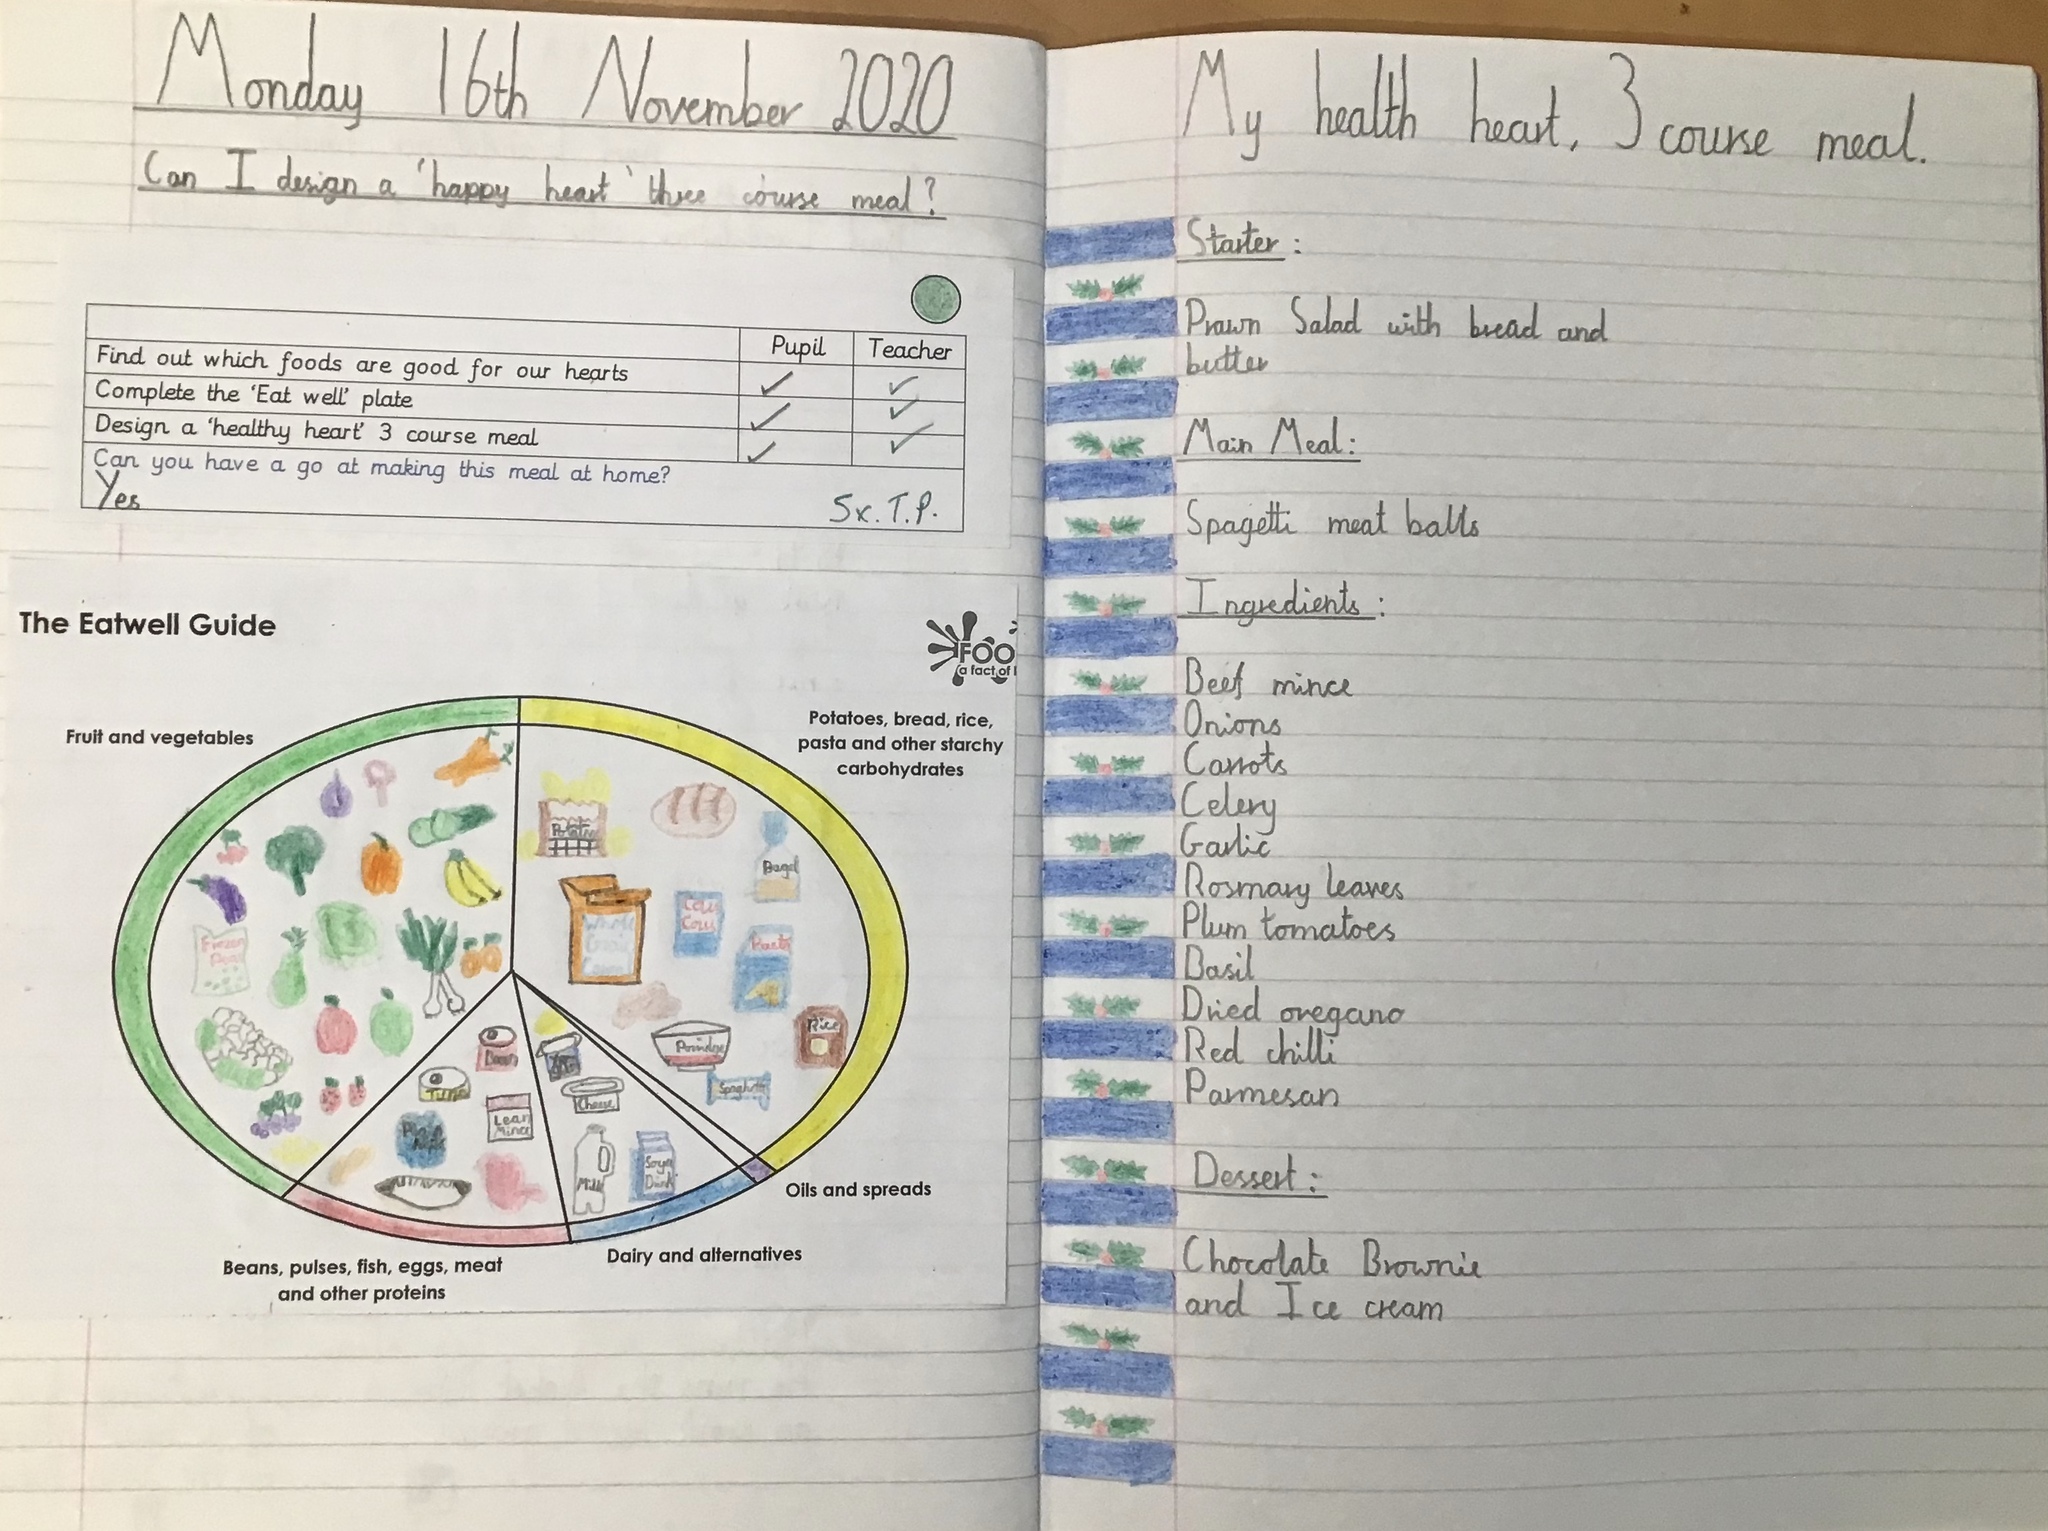 Monday 16th November 2020
Can I design a 'happy heart' three course meal?
Pupil Teacher
Find out which foods are good for our hearts
Complete the 'Eat well' plate
Design a 'healthy heart' 3 course meal
Can you have a go at making this meal at home?
Yes
Sx. T.P.
The Eatwell Guide
FOO
a fact of
Fruit and vegetables
Potatoes, bread, rice,
pasta and other starchy
carbohydrates
Potatoes
Bagel
Frozen
Peas
Whole
Grain
Cous
Cous
Pasta
Rice
Porridge
Spaghetti
Bean
Tuna
Lean
Mince
Cheese
Milk
Soya
Drink
Oils and spreads
Dairy and alternatives
Beans, pulses, fish, eggs, meat
and other proteins
My health heart, 3 course meal.
Starter :
Prawn Salad with bread and
butter
Main Meal:
Spagetti meat balls
Ingredients :
Beef mince
Onions
Carrots
Celery
Garlic
Rosmary leaves
Plum tomatoes
Basil
Dried oregano
Red chilli
Parmesan
Dessert :
Chocolate Brownie
and Ice cream